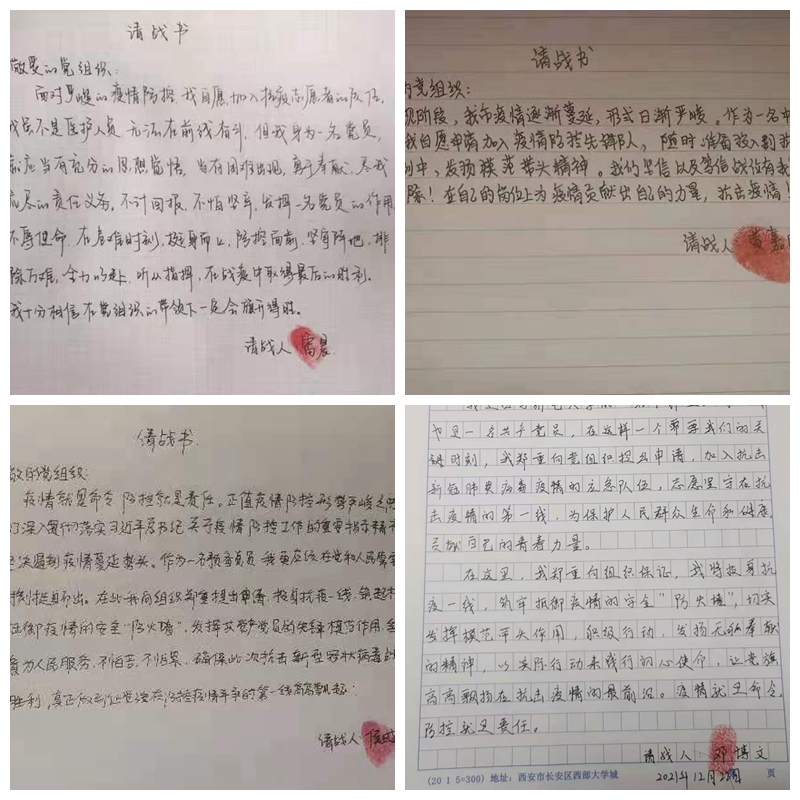 请战书
敬爱的党组织：
面对严峻的疫情防控，我自愿加入抗疫志愿者的队伍，
我虽不是医护人员 无法在前线奋斗，但我身为一名党员，
就应当有充分的思想觉悟，当有困难出现，勇于奉献，尽我
应尽的责任义务，不计回报，不怕牺牲，发挥一名党员的作用
不辱使命，在危难时刻，挺身而上，防控面前，坚守阵地，排
除万难，全力以赴，听从指挥，在战疫中取得最后的胜利。
我十分相信在党组织的带领下一定会旗开得胜。
请战人 雷晨
请战书
党组织：
现阶段，我市疫情逐渐蔓延，形式日渐严峻。作为一名中
我自愿申请加入疫情防控先锋队，随时准备投入到
中，发扬模范带头精神。我们坚信以及笃信战役有我
除！在自己的岗位上为疫情贡献出自己的力量，抗击疫情！
请战人
请战书
敬的党组织：
疫情就是命令 防控就是责任。正值疫情防控形势严峻之
深入贯彻落实习近平总书记关于疫情防控工作的重要指示精神
坚决遏制疫情蔓延势头。作为一名预备党员 我更应该在党和人民需要
时刻挺身而出。在此我向组织郑重提出申请，投身抗疫一线，筑起
抵御疫情的安全“防火墙”，发挥共产党员的先锋模范作用，全
意为人民服务，不怕苦，不怕累，确保此次抗击新型冠状病毒战
胜利，真正做到让党旗在防控疫情斗争的第一线高高飘起！
请战人
也是一名共产党员，在这样一个需要我们的关
键时刻，我郑重向党组织提出申请，加入抗击
新冠肺炎病毒疫情的应急队伍，志愿坚守在抗
击疫情的第一线，为保护人民群众生命和健康
贡献自己的青春力量。
在这里，我郑重向组织保证，我将投身抗
疫一线，筑牢抵御疫情的安全“防火墙”，切实
发挥模范带头作用，积极行动，发扬无私奉献
的精神，以实际行动来践行初心使命，让党旗
高高飘扬在抗击疫情的最前沿。疫情就是命令，
防控就是责任。
请战人 邓博文
2021年12月22日
(20 1 5=300) 地址：西安市长安区西部大学城 页